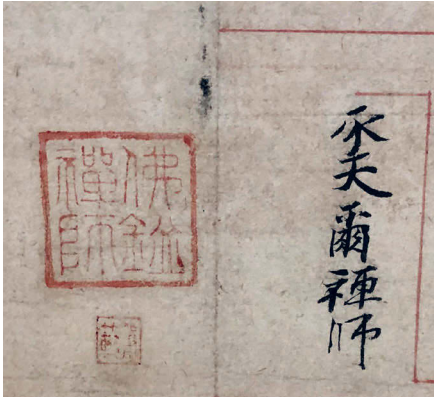 承天爾禪師
佛鑑
禪師